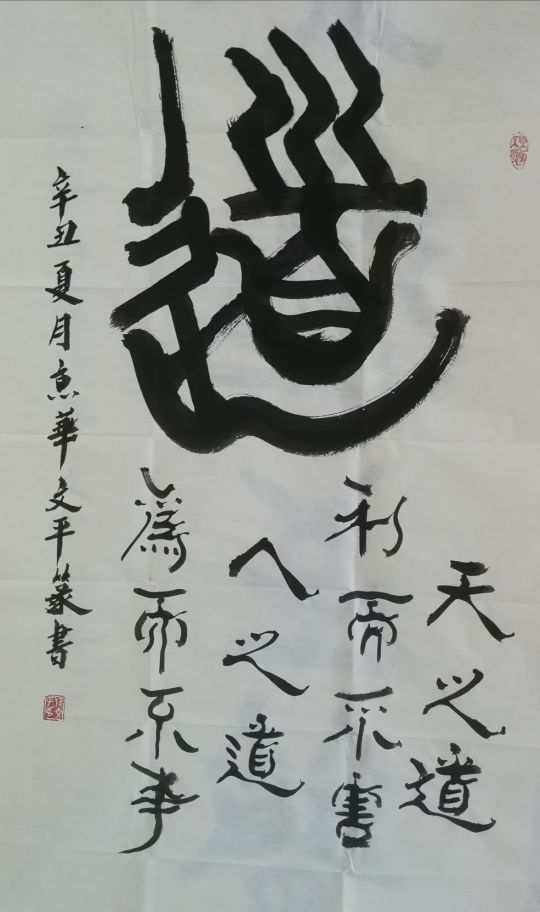 道
天之道
利而不害
人之道
爲而不争
辛丑夏月魚華文平篆書